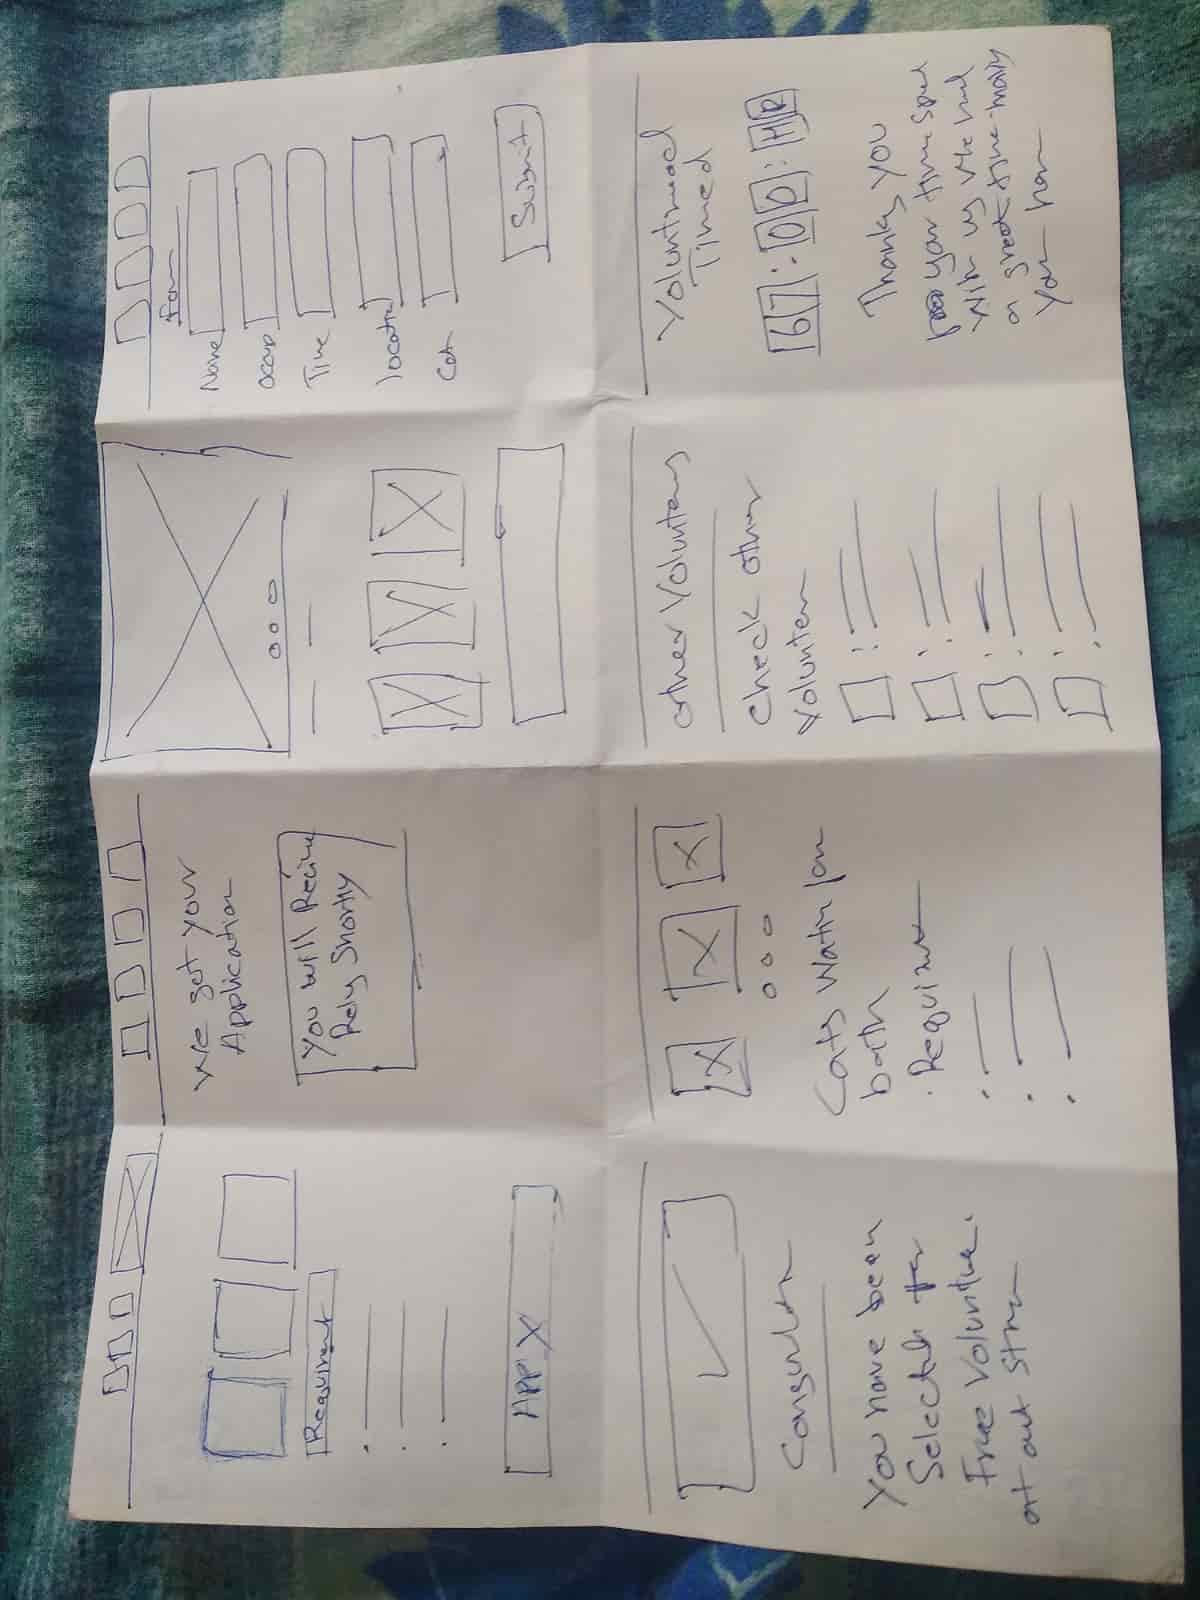 Requirment
APPLY
We got your
Application
You will Recive
Rely Shortly
Form
Name
Occup
Time
locatin
Cat
Submit
You have been
Selected for
Free Volunti
at out
Cats Watin for
both
other Voluntery
Check other
Volunteer
Voluntireed
Timed
67:00:HR
Thanks you
your time Spend
With us We had
a great time
You